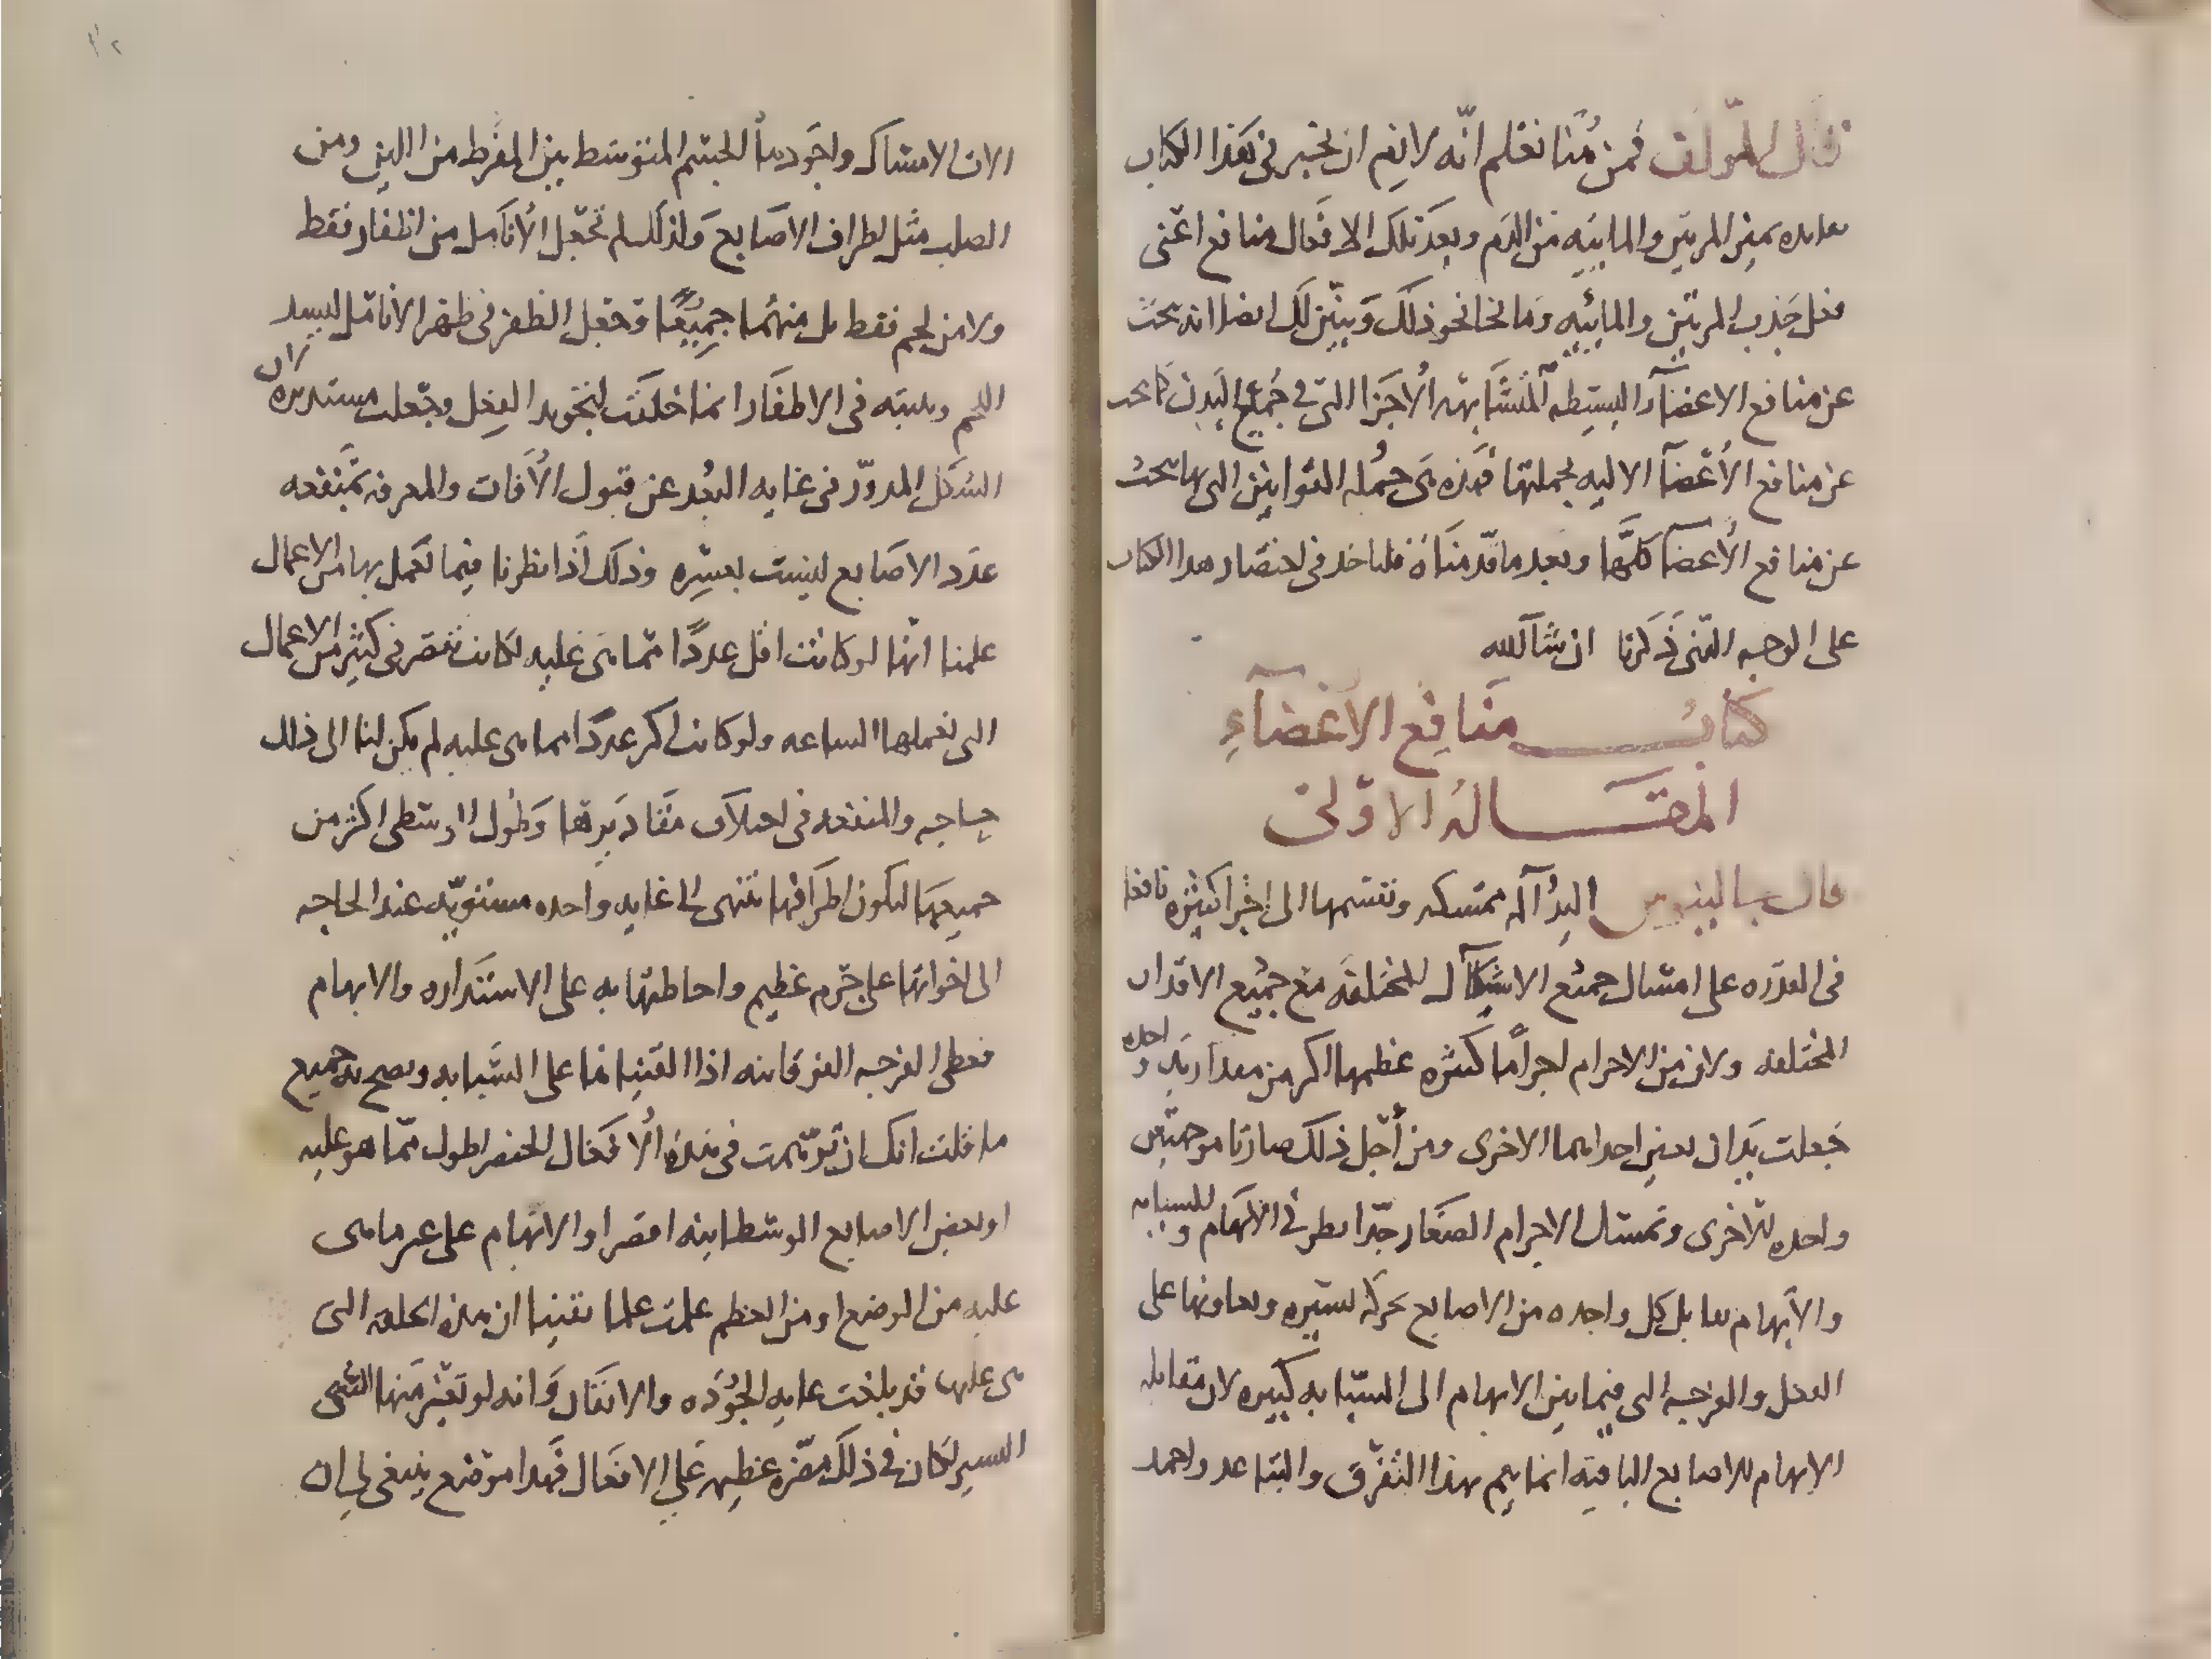 قال المؤلف فمن هنا نعلم انه لا يتم ان نخبر في هذا الكتاب
المرتين والمائيه من الدم وبعد تلك الافعال منافع اعنى
فعل جذب المرتين والمائيه وما نحا نحو ذلك ونبين لك ايضا انه بحث
عن منافع الاعضآء البسيطه المتشابهه الاجزا التي في جميع البدن كما بحث
عن منافع الأعضآ الاليه بجملتها فهذه هى جمله القوانين التى بها بحث
عن منافع الأعضآ كلها وبعد ما قدمناه فلناخذ في اختصار هدا الكتاب
على الوجه الذى ذكرنا ان شآ الله
كتاب منافع الاعضآء
المقالة الاولى
قال جالينوس اليد آله ممسكه وتقسمها الى اجزا كثيره نافعا
فى القدره على امساك جميع الاشكال المختلفه مع جميع الاقدار
المختلفه ولان من الاجرام اجراما كثيره عظمها اكبر من مقدار يد واحده
جعلت يدان تعين احداهما الاخرى ومن أجل ذلك صارتا موجهتين
واحده للاخرى وتمسك الاجرام الصغار جدا بطرفى الابهام والسبابه
والابهام تقابل كل واحده من الاصابع بحركه يسيره وتعاونها على
الفعل والفرجه التى فيما بين الابهام الى السبابه كبيره لان مقابله
الابهام للاصابع الباقيه انما يتم بهذا التفرق والتباعد واحمد
الات الامساك واجودها الجسم المتوسط بين المفرط من اللين ومن
الصلب مثل اطراف الاصابع ولذلك لم تجعل الأنامل من اظفار فقط
ولا من لحم فقط بل منهما جميعا وجعل الظفر في ظهر الانامل ليسند
اللحم ويثبته في الاظفار انما خلقت لتجويد الفعل وجعلت مستديره لان
الشكل المدور في غايه البعد عن قبول الأفات والمعرفه بمنفعه
عدد الاصابع ليست بعسره وذلك أذا نظرنا فيما نعمل بها من الاعمال
علمنا انها لو كانت اقل عددا مما هى عليه لكانت تقصر فى كثير من الاعمال
التى نعملها الساعه ولو كانت اكثر عددا مما هى عليه لم يكن لنا الى ذلك
حاجه والمنفعه فى اختلاف مقاديرها وطول الوسطى اكثر من
جميعها لتكون اطرافها تنتهى الى غايه واحده مستويه عند الحاجه
الى اخواتها على جرم عظيم واحاطتها به على الاستداره والابهام
تغطى الفرجه الفوقانيه اذا القيناها على السبابه ويصح به جميع
ما قلت انك ان توهمت في هذه الأفعال الخنصر اطول مما هو عليه
او بعض الاصابع الوسطانيه اقصر او الابهام على غير ما هى
عليه من الوضع او من العظم علمت علما يقينا ان هذه الخلقه التى
هى عليها قد بلغت غايه الجوده والاتقان وانه لو تغير منها الشى
اليسير لكان فى ذلك مضره عظيمه على الافعال فهدا موضع ينبغى لى ان